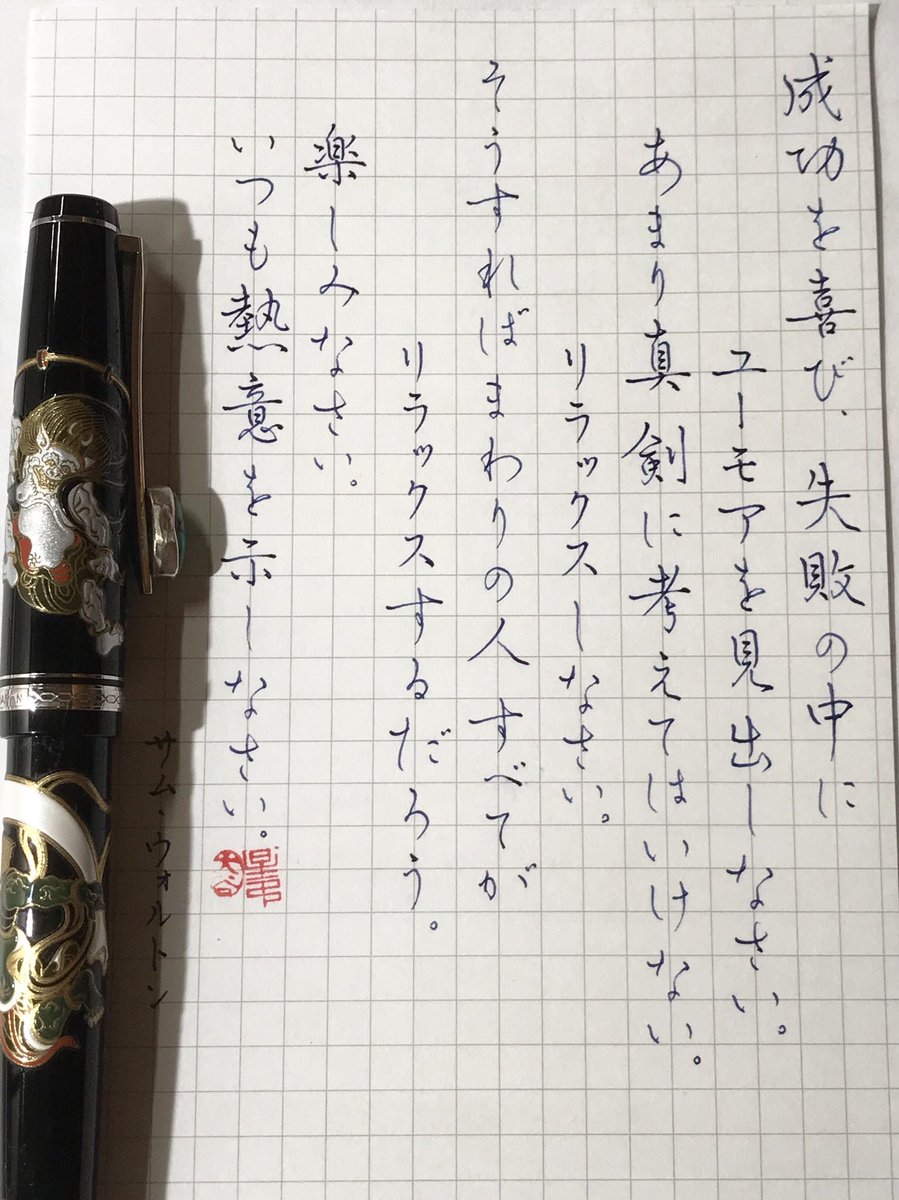 成功を喜び、失敗の中に
ユーモアを見出しなさい。
あまり真剣に考えてはいけない。
リラックスしなさい。
そうすればまわりの人すべてが
リラックスするだろう。
楽しみなさい。
いつも熱意を示しなさい。
サム・ウォルトン